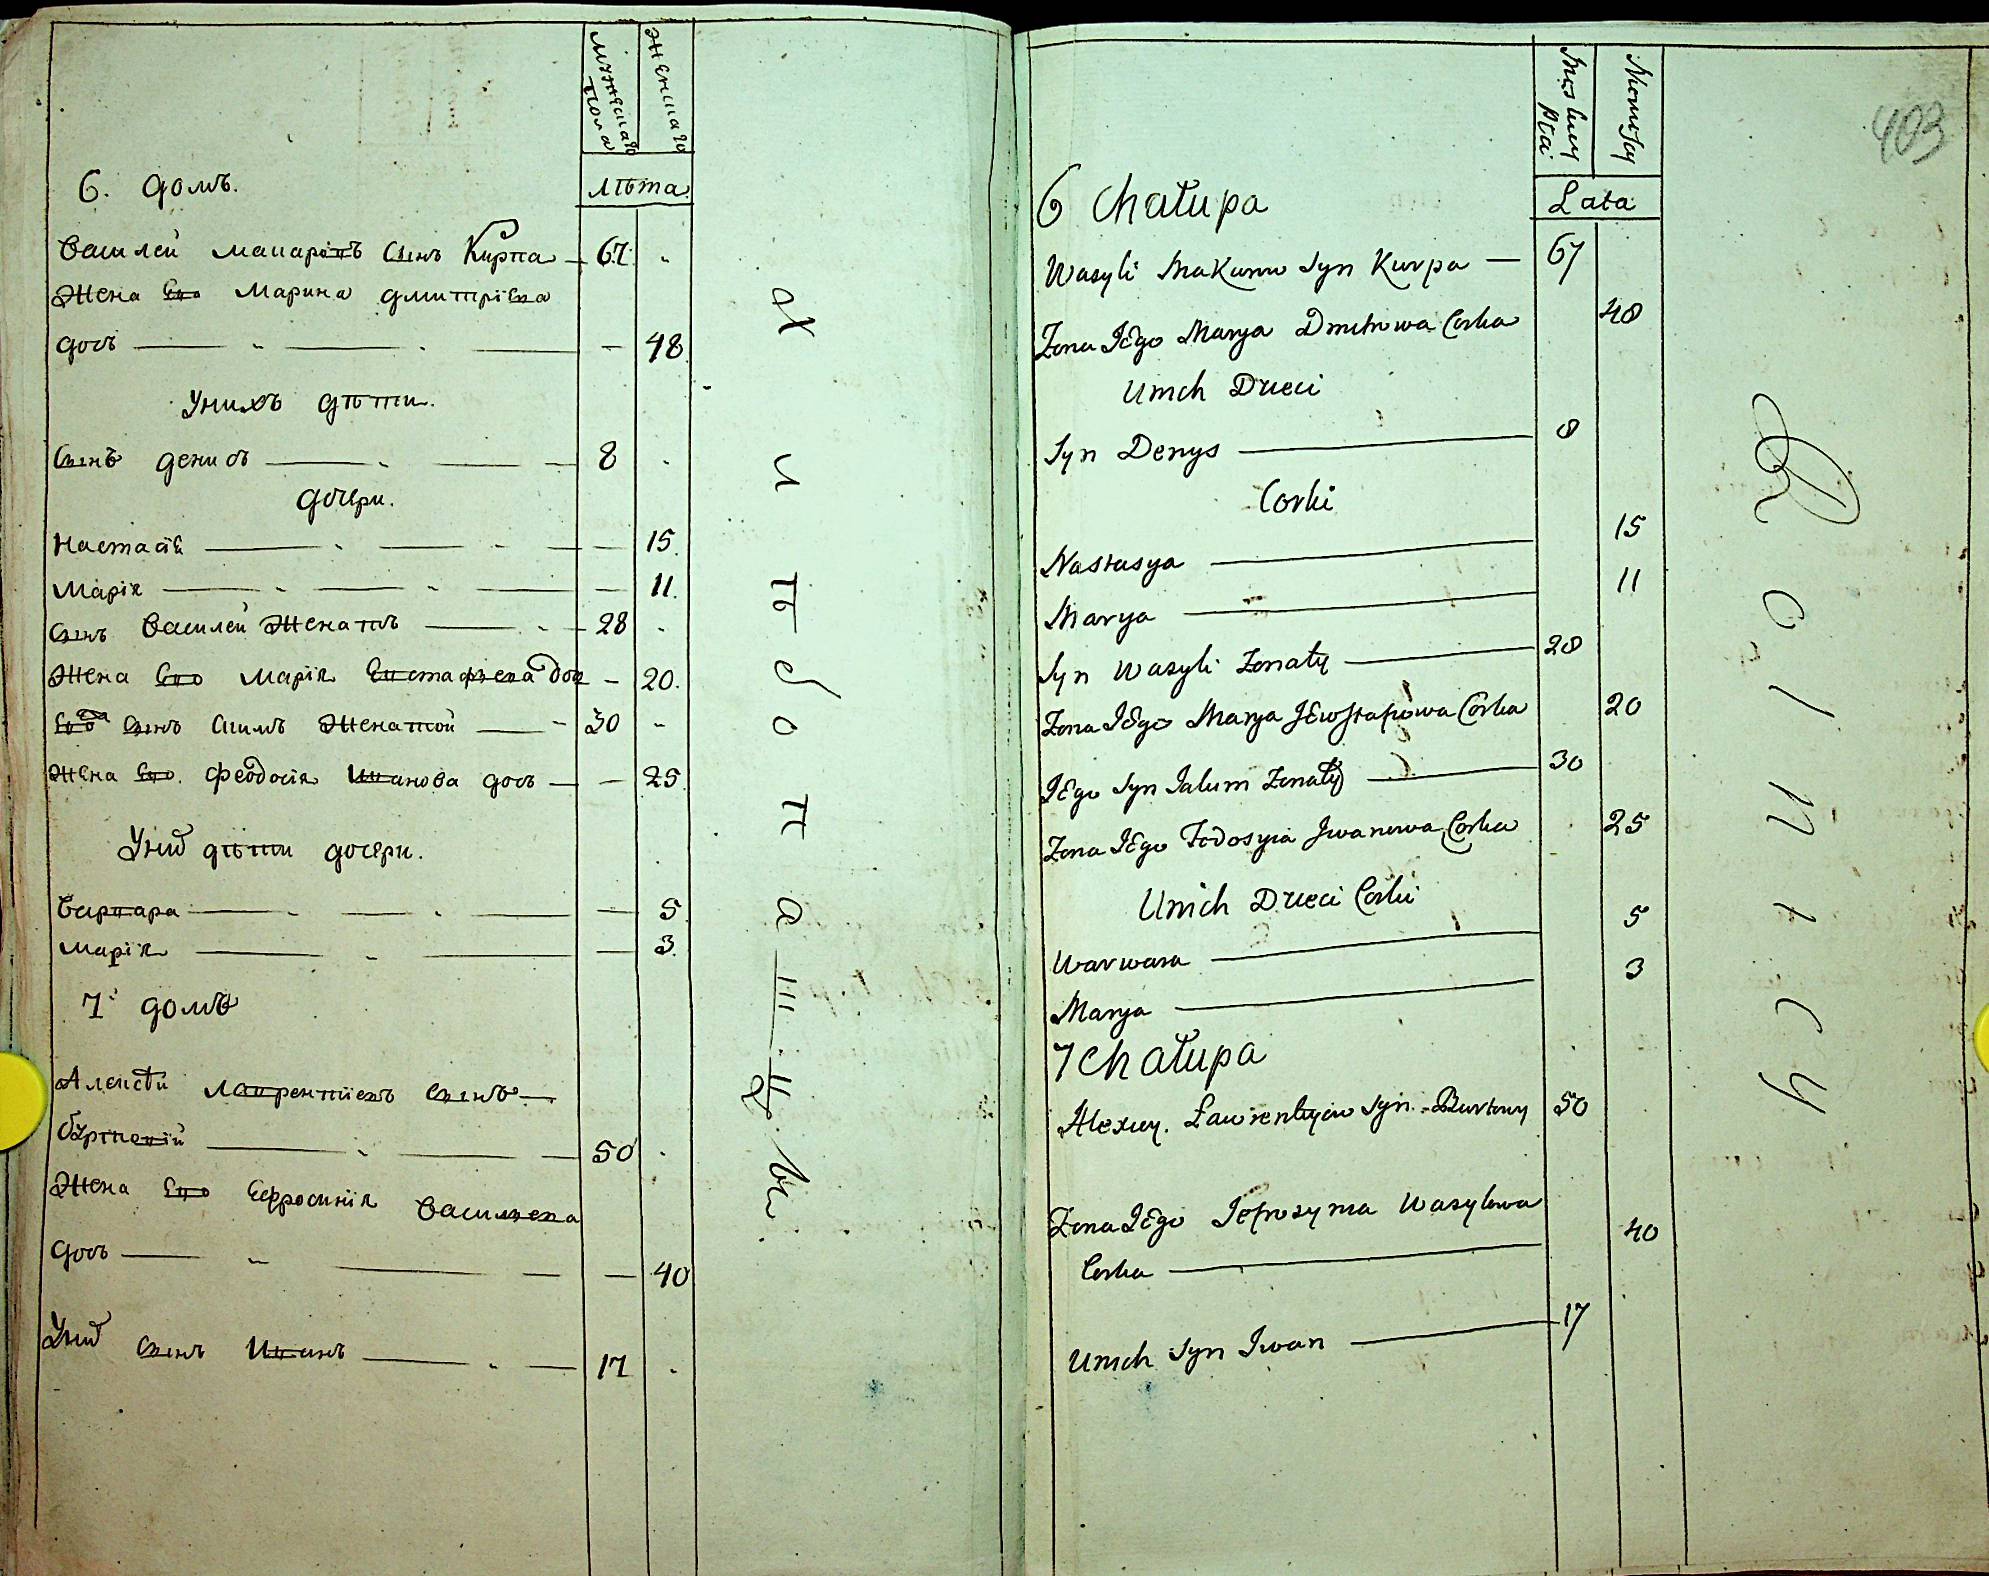 мужеска
пола
женска
лѣта
6. домъ.
Василей макаровъ сынъ Кирпа — 67
жена его марина дмитрієва
дочь — 48
Унихъ дѣти.
Сынъ денисъ — 8
дочери.
настасія — 15.
марія — 11.
сынъ василей женатъ — 28
жена его марія Евстафиева доч — 20.
его сынъ якимъ женатой — 30
жена его. феодосія иванова дочь — 25
Уних дѣти дочери.
варвара — 5
марія — 3.
7 домъ
Алексѣй лаврентіевъ сынъ —
— 50
жена его Ефросинія василиева
дочь — 40
Уних сынъ иванъ — 17
403
Męskiey
Płci
Lata
6 Chałupa
Wasyli Makarow Syn Kurpa — 67
Zona Jego Marya Dmitrowa Corka 48
Unich Dzieci
Syn Denys — 8
Corki
Nastasya — 15
Marya — 11
Syn Wasyli Zonaty — 28
Zona Jego Marya Jewstafiowa Corka 20
Jego Syn Jakim Zonaty — 30
Zona Jego Fedosyia Jwanowa Corka 25
Unich Dzieci Corki
Warwara — 5
Marya — 3
7 Chałupa
Alexiey Ławrentyiow Syn Burtowy 50
Zona Jego Jefrosynia Wasylowa
Corka — 40
Unich Syn Iwan — 17
Rolnicy